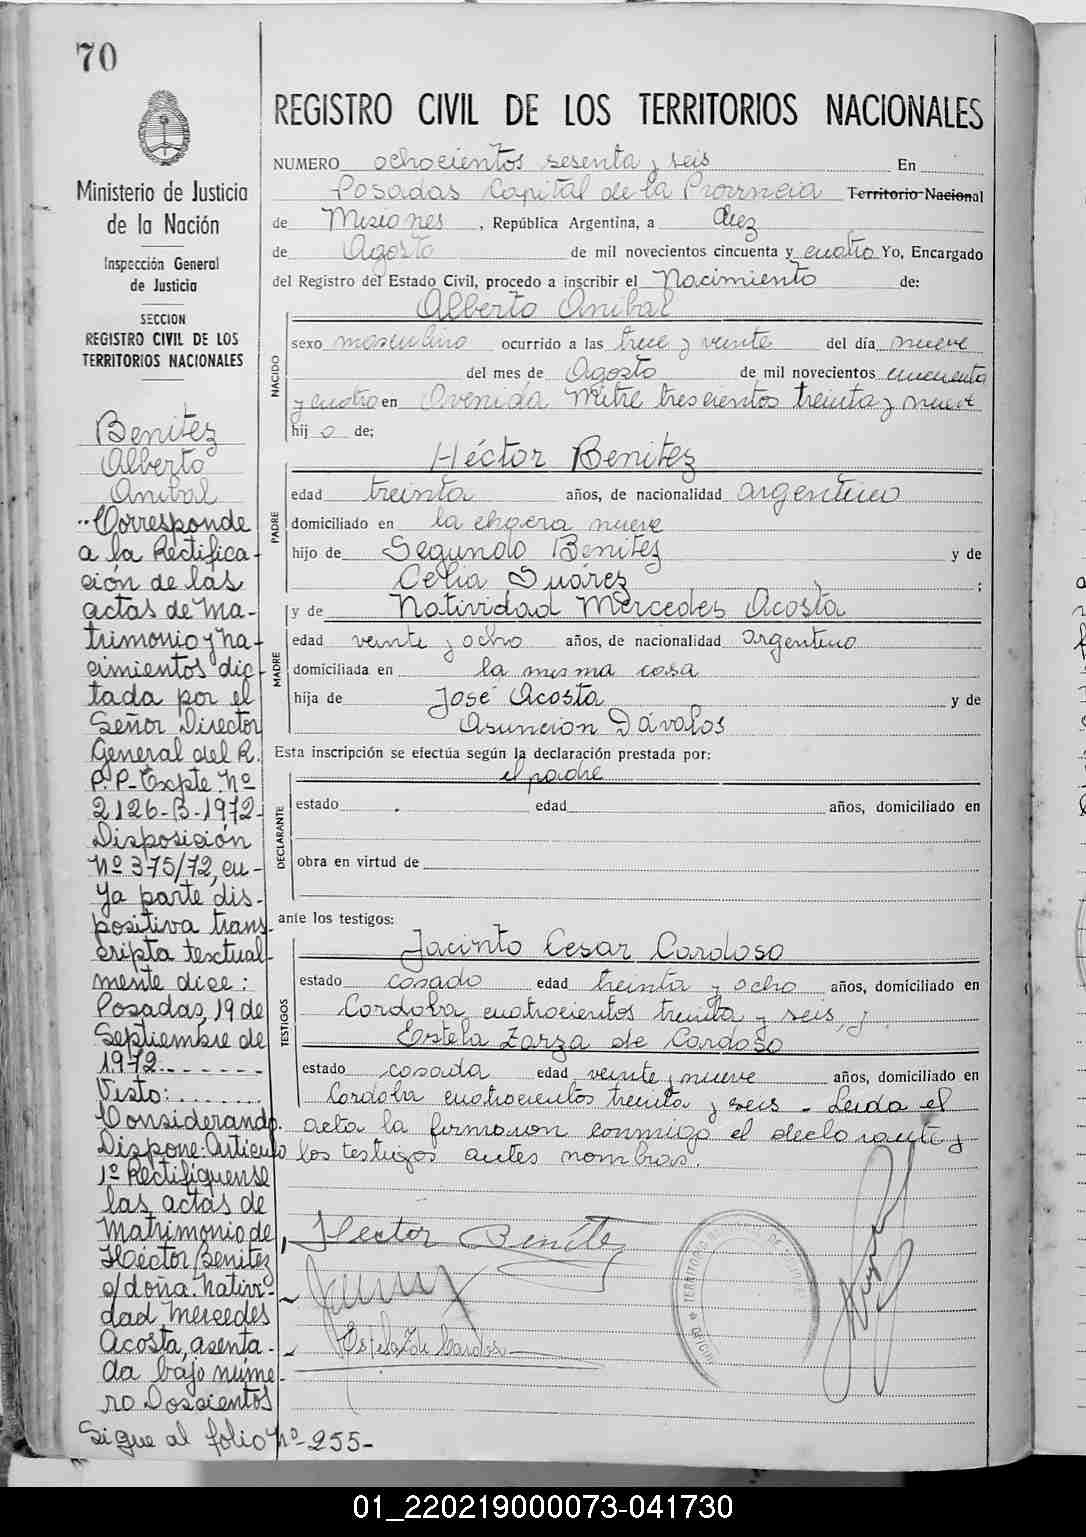 70
Ministerio de Justicia
de la Nación
Inspección General
de Justicia
SECCION
REGISTRO CIVIL DE LOS
TERRITORIOS NACIONALES
Benitez
Alberto
Anibal
"Corresponde
a la Rectifica-
ción de las
actas de Ma-
trimonio y na-
cimientos dic-
tada por el
Señor Director
General del R.
P.P-Expte. Nº
2126-B-1972-
Disposición
Nº 375/72, cu-
ya parte dis-
positiva trans-
cripta textual-
mente dice:
Posadas, 19 de
Septiembre de
1972.-------
Visto:.......
Considerando.
Dispone: Artículo
1º Rectifíquense
las actas de
Matrimonio de
Héctor Benitez
c/doña Nativi-
dad Mercedes
Acosta, asenta-
da bajo núme-
ro Doscientos
Sigue al folio Nº-255-
REGISTRO CIVIL DE LOS TERRITORIOS NACIONALES
NUMERO ochocientos sesenta y seis En
Posadas Capital de la Provincia Territorio Nacional
de Misiones, República Argentina, a diez
de Agosto de mil novecientos cincuenta y cuatro Yo, Encargado
del Registro del Estado Civil, procedo a inscribir el Nacimiento de:
Alberto Anibal
NACIDO
sexo masculino ocurrido a las trece y veinte del día nueve
del mes de Agosto de mil novecientos cincuenta
y cuatro en Avenida Mitre trescientos treinta y nueve
hij o de;
Héctor Benitez
PADRE
edad treinta años, de nacionalidad argentino
domiciliado en la chacra nueve
hijo de Segundo Benitez y de
Celia Suárez ;
y de Natividad Mercedes Acosta
MADRE
edad veinte y ocho años, de nacionalidad argentina
domiciliada en la misma casa
hija de José Acosta y de
Asuncion Dávalos
Esta inscripción se efectúa según la declaración prestada por:
el padre
DECLARANTE
estado edad años, domiciliado en
obra en virtud de
ante los testigos:
Jacinto Cesar Cardoso
TESTIGOS
estado casado edad treinta y ocho años, domiciliado en
Cordoba cuatrocientos treinta y seis, y
Estela Zarza de Cardoso
estado casada edad veinte y nueve años, domiciliado en
Cordoba cuatrocientos treinta y seis - Leida el
acta la firmaron conmigo el declarante y
los testigos antes nombras.
Hector Benitez
Estela Z de Cardoso
01_220219000073-041730